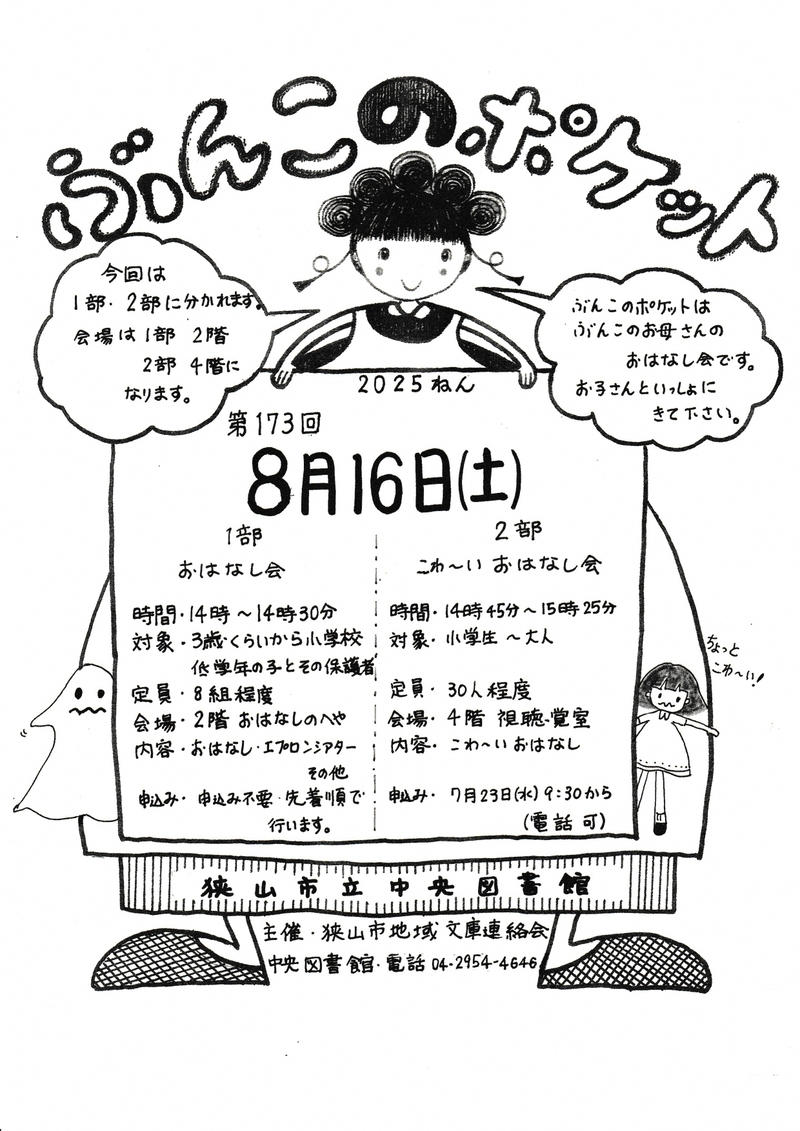 ぶんこのポケット
今回は
1部・2部に分かれます。
会場は1部 2階
2部 4階に
なります。
ぶんこのポケットは
ぶんこのお母さんの
おはなし会です。
お子さんといっしょに
きて下さい。
2025ねん
第173回
8月16日(土)
1部
おはなし会
時間・14時〜14時30分
対象・3歳くらいから小学校
低学年の子とその保護者
定員・8組程度
会場・2階 おはなしのへや
内容・おはなし・エプロンシアター
その他
申込み・申込み不要 先着順で
行います。
2部
こわ〜い おはなし会
時間・14時45分〜15時25分
対象・小学生 〜大人
定員・30人程度
会場・4階 視聴覚室
内容・こわ〜いおはなし
申込み・7月23日(水)9:30から
(電話可)
ちょっと
こわ〜い!
狭山市立中央図書館
主催・狭山市地域文庫連絡会
中央図書館・電話 04-2954-4646